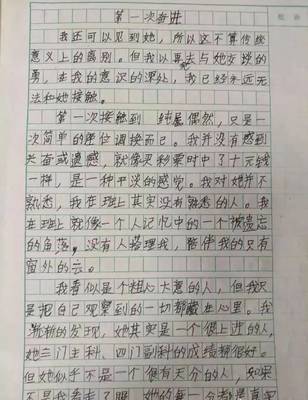 第一次奋进
我还可以见到她，所以这不算传统
意义上的离别。但我以再去与她交谈的
勇，在我的意识的深处，我已经永远无
法和她接触。
第一次接触到 纯属偶然，只是一
次简单的座位调换而已。我并没有感到
兴奋或遗憾，就像买彩票时中了十元钱
一样，是一种平淡的感觉。我对她并不
熟悉，我在班上其实没有熟悉的人。我
在班上就像一个人记忆中的一个被遗忘
的角落，没有人搭理我，陪伴我的只有
窗外的云。
我看似是个粗心大意的人，但我只
是把自己观察到的一切都藏在心里。我
渐渐的发现，她其实是一个很上进的人，
她三门主科、四门副科的成绩都很好。
但她似乎不是一个很有天分的人，如果
不是我看走了眼，她的每一分都是真实